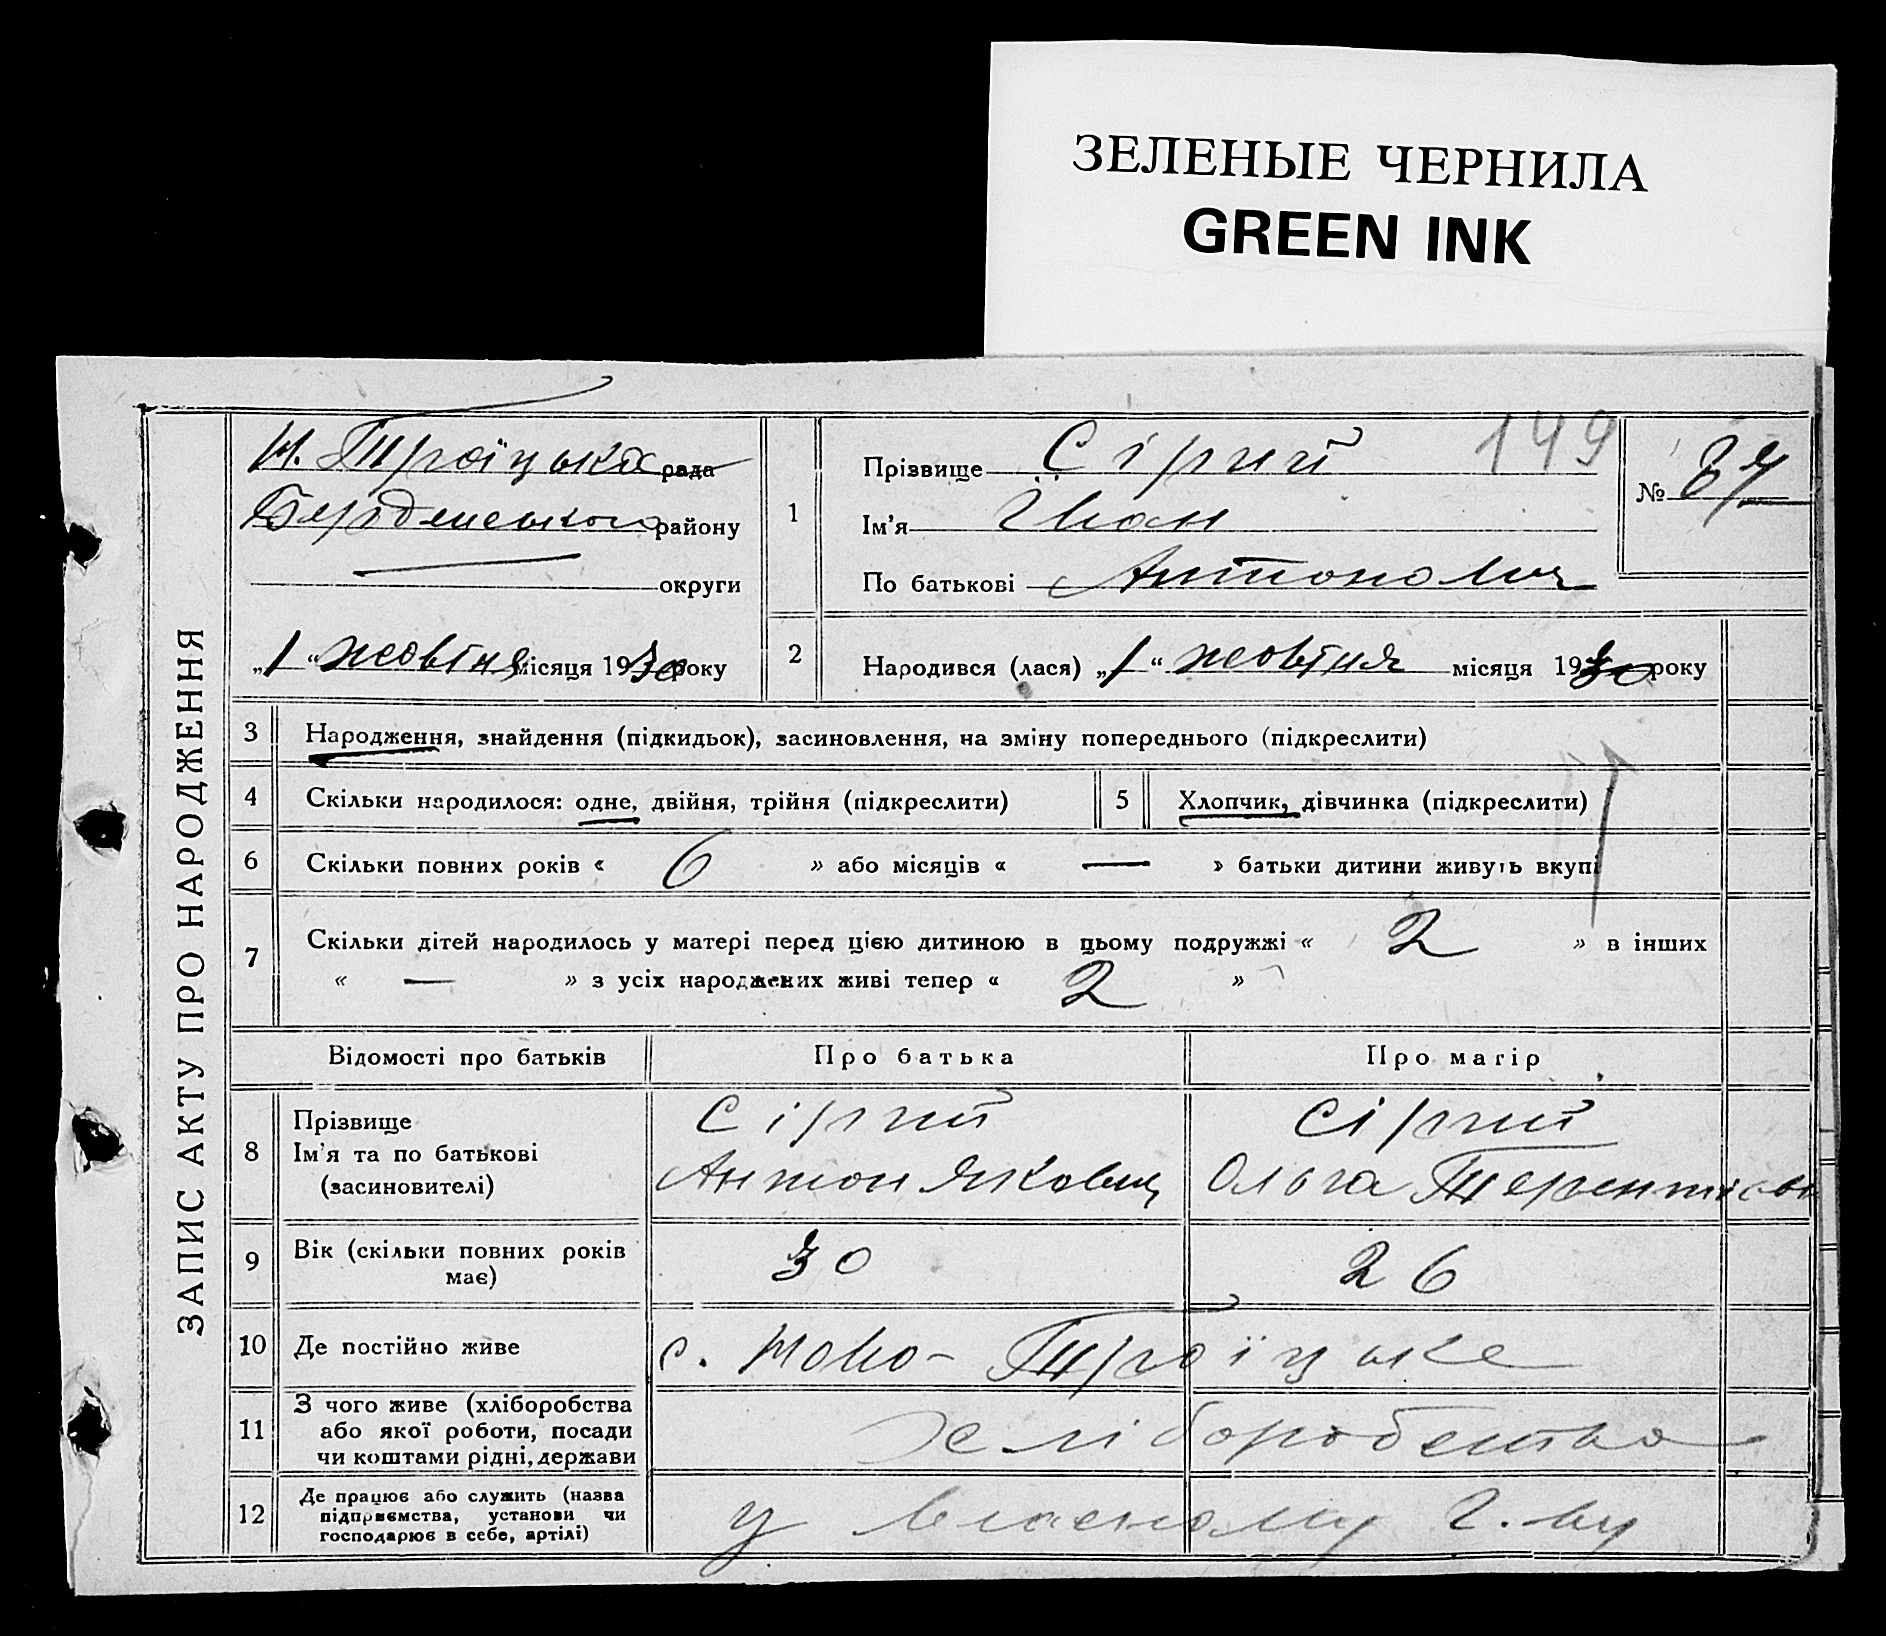 ЗЕЛЕНЫЕ ЧЕРНИЛА
GREEN INK
ЗАПИС АКТУ ПРО НАРОДЖЕННЯ
Н. Троїцька рада
Бердянського району
округи
„1“ жовтня місяця 1930 року
1
Прізвище Сірий 149
Ім’я Іван
По батькові Антонович
№ 87
2
Народився (лася) „1“ жовтня місяця 1930 року
3 Народження, знайдення (підкидьок), засиновлення, на зміну попереднього (підкреслити)
4 Скільки народилося: одне, двійня, трійня (підкреслити) 5 Хлопчик, дівчинка (підкреслити)
6 Скільки повних років « 6 » або місяців « — » батьки дитини живуть вкупі
7 Скільки дітей народилось у матері перед цією дитиною в цьому подружжі « 2 » в інших
« — » з усіх народжених живі тепер « 2 »
Відомості про батьків Про батька Про матір
8 Прізвище
Ім’я та по батькові
(засиновителі)
Сірий
Антон Якович
Сірий
Ольга Терентієв
9 Вік (скільки повних років
має)
30 26
10 Де постійно живе с. Ново-Троїцьке
11 З чого живе (хліборобства
або якої роботи, посади
чи коштами рідні, держави
хліборобства
12 Де працює або служить (назва
підприємства, установи чи
господарює в себе, артілі)
у власному г-ву